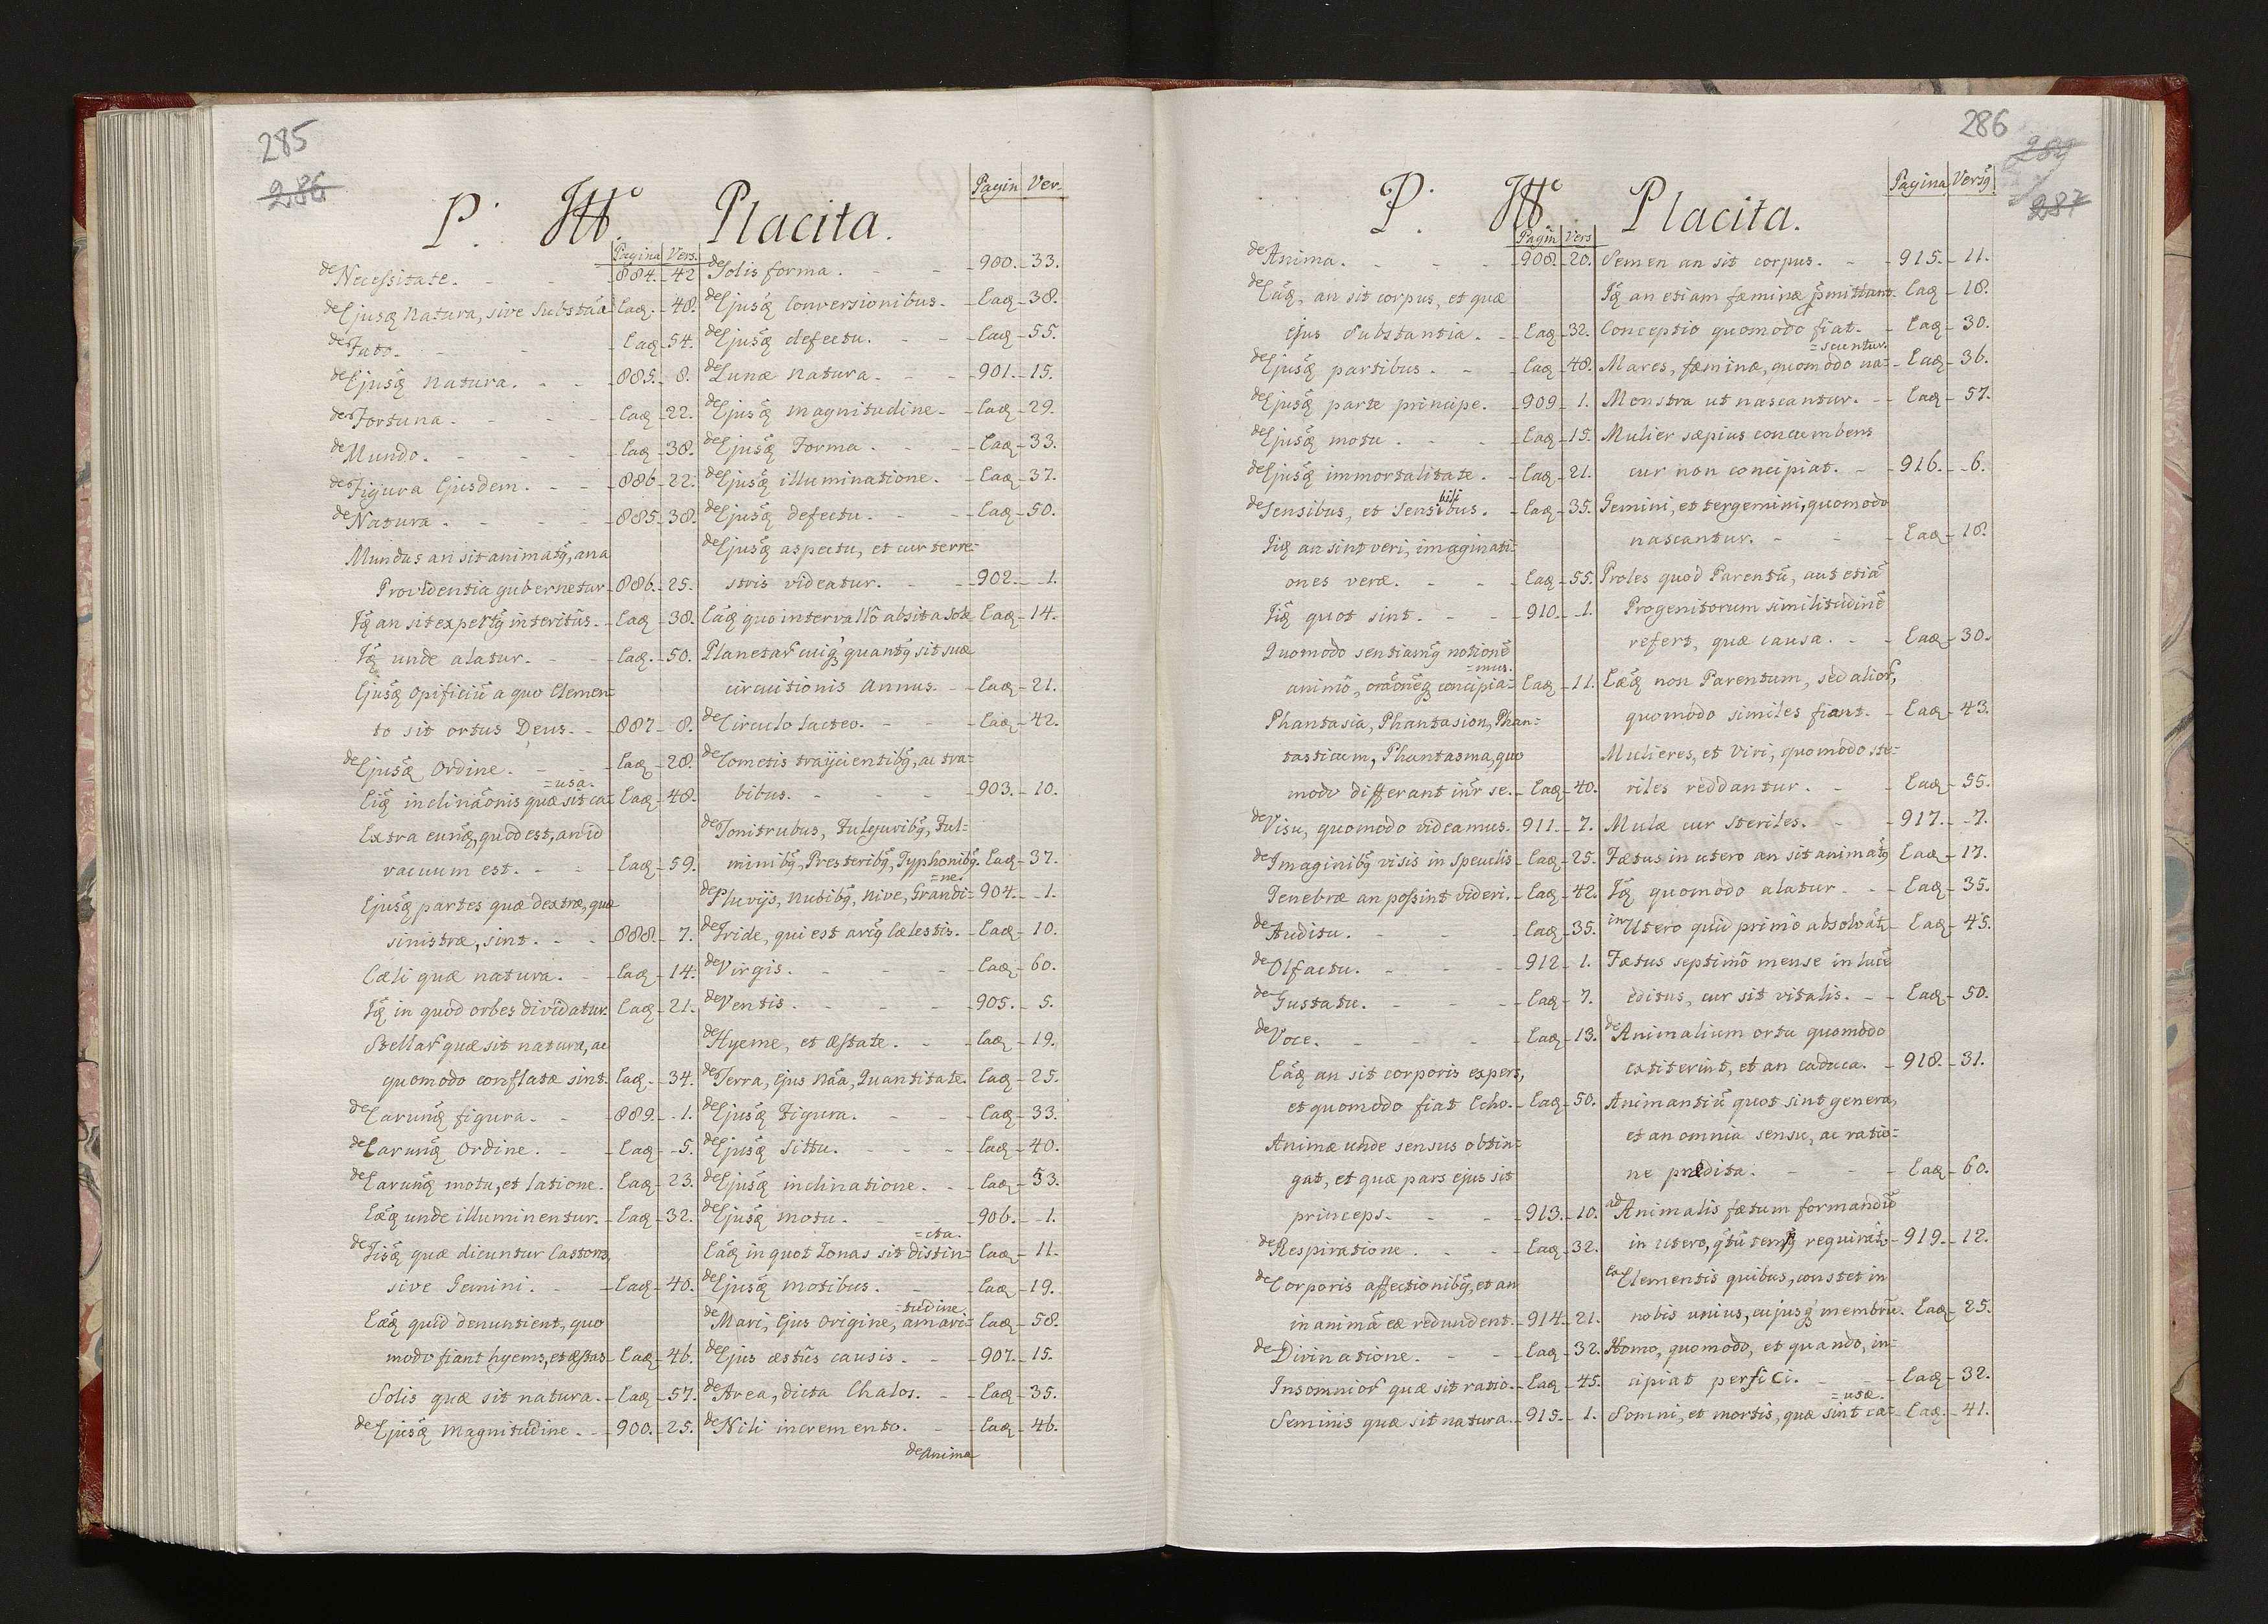 285
286
P. Ph. Placita.
Pagin Ver.
Pagina Vers.
de Necessitate. 884. 42
de Ejusq Natura, sive Substãa Eaq. 48.
de Fato. Eaq 54.
de Ejusq Natura. 885. 8.
de Fortuna. Eaq 22.
de Mundo. Eaq 38.
de Figura Ejusdem. 886 22.
de Natura. 885. 38.
Mundus an sit animatq, an a
Providentia gubernetur 886. 25.
Iq an sit expertq interitus. Eaq 38.
Iq unde alatur. Eaq. 50.
Ejusq Opificiũ a quo Elemen=
to sit ortus Deus. 887 8.
de Ejusq Ordine. Eaq 28.
=usa.
Eiq inclinãonis quæ sit ca= Eaq 48.
Extra eunq, quod est, an id
vacuum est. Eaq 59.
Ejusq partes quæ dextræ, quæ
sinistræ, sint. 888. 7.
Cæli quæ natura. Eaq 14.
Iq in quod orbes dividatur. Eaq 21.
Stellar quæ sit natura, ac
quomodo conflatæ sint. Eaq. 34.
de Earunq figura. 889. 1.
de Earunq Ordine. Eaq 5.
de Earunq motu, et latione. Eaq 23.
Eæq unde illuminentur. Eaq 32.
de Iisq quæ dicuntur Castores,
sive Gemini. Eaq 40.
Eæq quid denuntient, quo
modo fiant hyems, et æstas Eaq 46.
Solis quæ sit natura. Eaq 57.
de Ejusq Magnitudine. 900. 25.
de Solis forma. 900. 33.
de Ejusq Conversionibus. Eaq 38.
de Ejusq defectu. Eaq 55.
de Lunæ Natura. 901. 15.
de Ejusq magnitudine. Eaq 29.
de Ejusq Forma. Eaq 33.
de Ejusq illuminatione. Eaq 37.
de Ejusq defectu. Eaq 50.
de Ejusq aspectu, et cur terre=
stris videatur. 902. 1.
Eaq quo intervallô absit a Sole Eaq 14.
Planetar cuiq quantq sit suæ
circuitionis Annus. Eaq 21.
de Circulo lacteo. Eaq 42.
de Cometis trajicientibq, ac tra=
bibus. 903. 10.
de Tonitrubus, Fulguribq, Ful=
minibq, Presteribq, Typhonibq. Eaq 37.
=ne.
de Pluvijs, Nubibq, Nive, Grandi= 904. 1.
de Iride, qui est arcq Cælestis. Eaq 10.
de Virgis. Eaq 60.
de Ventis. 905. 5.
de Hyeme, et Æstate. Eaq 19.
de Terra, Ejus Nãa, Quantitate. Eaq 25.
de Ejusq Figura. Eaq 33.
de Ejusq Sittu. Eaq 40.
de Ejusq inclinatione. Eaq 53.
de Ejusq motu. 906. 1.
=cta.
Eaq in quot Zonas sit distin= Eaq 11.
de Ejusq Motibus. Eaq 19.
=tudine.
de Mari, Ejus Origine, amari= Eaq 58.
de Ejus æstûs causis. 907. 15.
de Area, dicta Chalos. Eaq 35.
de Nili incremento. Eaq 46.
de Anima
286
289
287
P. Ph. Placita.
Pagina Versq
Pagin Vers
de Anima. 908. 20.
de Eaq, an sit corpus, et quæ
ejus Substantia. Eaq 32.
de Ejusq partibus. Eaq 48.
de Ejusq parte principe. 909 1.
de Ejusq motu. Eaq 15.
de Ejusq immortalitate. Eaq 21.
bili
de Sensibus, et Sensibus. Eaq 35.
Iiq an sint veri, imaginati=
ones veræ. Eaq 55.
Iiq quot sint. 910. 1.
Quomodo sentiamq notionẽ
=mus.
animo, orãonẽq concipia= Eaq 11.
Phantasia, Phantasion, Phan=
tasticum, Phantasma, quo
modo differant inr se. Eaq 40.
de Visu, quomodo videamus. 911. 7.
de Imaginibq visis in Speculis Eaq 25.
Tenebræ an possint videri. Eaq 42.
de Auditu. Eaq 35.
de Olfactu. 912 1.
de Gustatu. Eaq 7.
de Voce. Eaq 13.
Eaq an sit corporis expers,
et quomodo fiat Echo. Eaq 50.
Animæ unde sensus obtin=
gat, et quæ pars ejus sit
princeps. 913. 10.
de Respiratione. Eaq 32.
de Corporis affectionibq, et an
in animã eæ redundent. 914 21.
de Divinatione. Eaq 32.
Insomnior quæ sit ratio. Eaq 45.
Seminis quæ sit natura. 915 1.
Semen an sit corpus. 915. 11.
Iq an etiam fæminæ pmittant. Eaq 18.
Conceptio quomodo fiat. Eaq 30.
=scuntur.
Mares, fæminæ, quomodo na= Eaq 36.
Monstra ut nascantur. Eaq 57.
Mulier sæpius concumbens
cur non concipiat. 916. 6.
Gemini, et tergemini, quomodo
nascantur. Eaq 18.
Proles quod Parentũ, aut etiã
Progenitorum similitudinẽ
refert, quæ causa. Eaq 30.
Eæq non Parentum, sed alior,
quomodo similes fiant. Eaq 43.
Mulieres, et Viri, quomodo ste=
riles reddantur. Eaq 55.
Mulæ cur steriles. 917. 7.
Fætus in utero an sit animatq Eaq 17.
Iq quomodo alatur. Eaq 35.
in Utero quid primo absolvatr Eaq 45.
Fætus septimo mense in lucẽ
editus, cur sit vitalis. Eaq 50.
de Animalium ortu quomodo
extiterint, et an caduca. 918. 31.
Animantiũ quot sint genera,
et an omnia sensu, ac ratio=
ne prædita. Eaq 60.
ad Animalis fætum formandũ
in Utero, qtũ temp requiratr 919. 12.
Ex Elementis quibus, constet in
nobis unius, cujusq membrũ. Eaq 25.
Homo, quomodo, et quando, in=
cipiat perfici. Eaq 32.
=usæ.
Somni, et mortis, quæ sint ca= Eaq. 41.